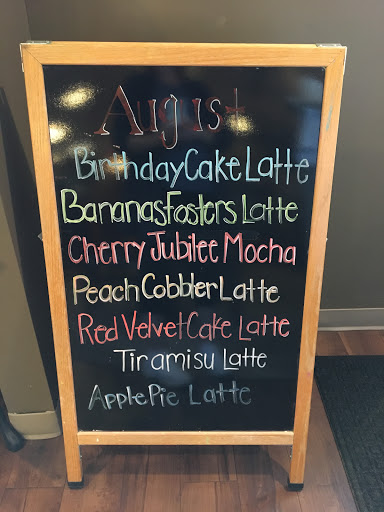 Aug 1st
Birthday Cake Latte
Bananas Fosters Latte
Cherry Jubilee Mocha
Peach Cobbler Latte
Red Velvet Cake Latte
Tiramisu Latte
Apple Pie Latte